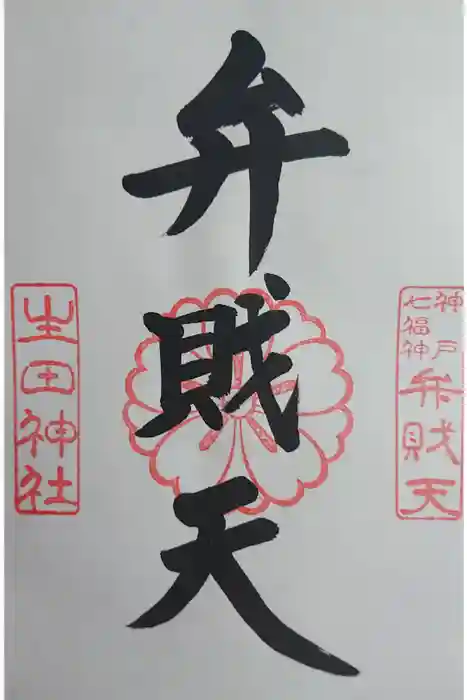 神戸
七福神
弁戝天
弁戝天
生田神社